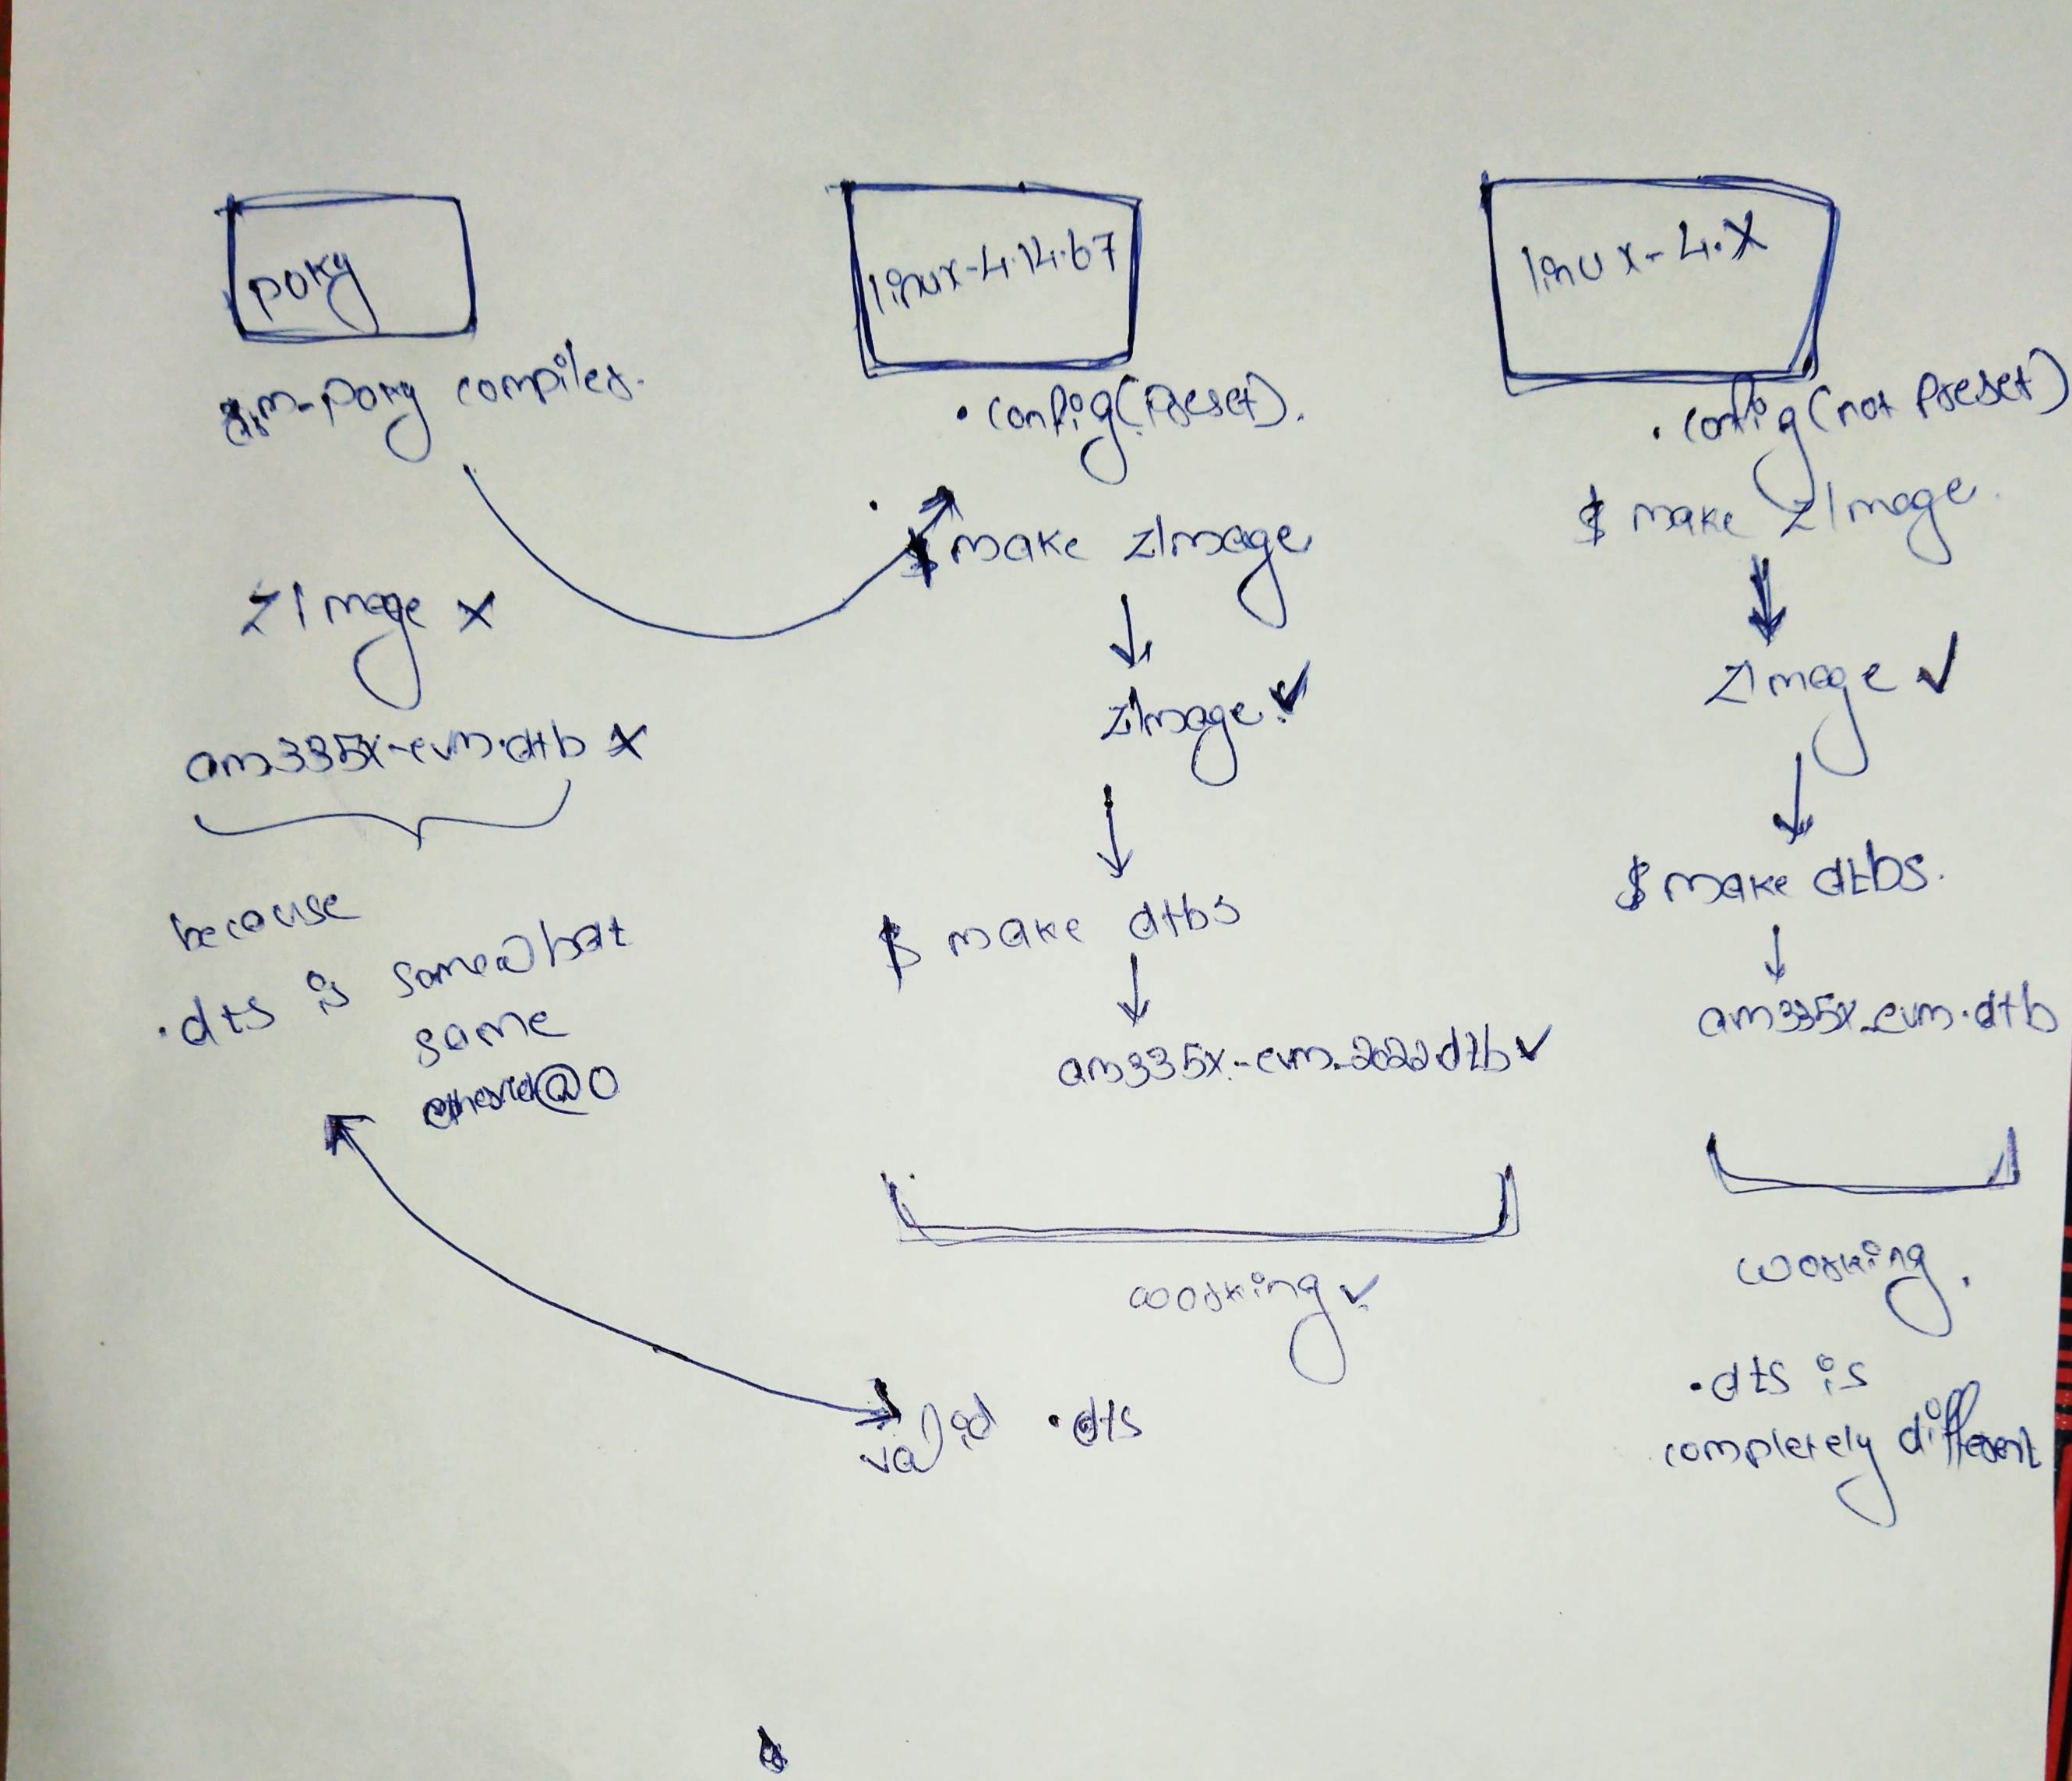 poky
arm-poky compiler.
zImage x
am335x-evm.dtb x
because
.dts is somewhat
same
ethernet@0
linux-4.14.67
.config(Preset).
$ make zImage
zImage ✓
$ make dtbs
am335x-evm-2022.dtb ✓
working ✓
valid .dts
linux-4.X
.config(not Preset)
$ make zImage.
zImage ✓
$ make dtbs.
am335x-evm.dtb
working.
.dts is
completely different